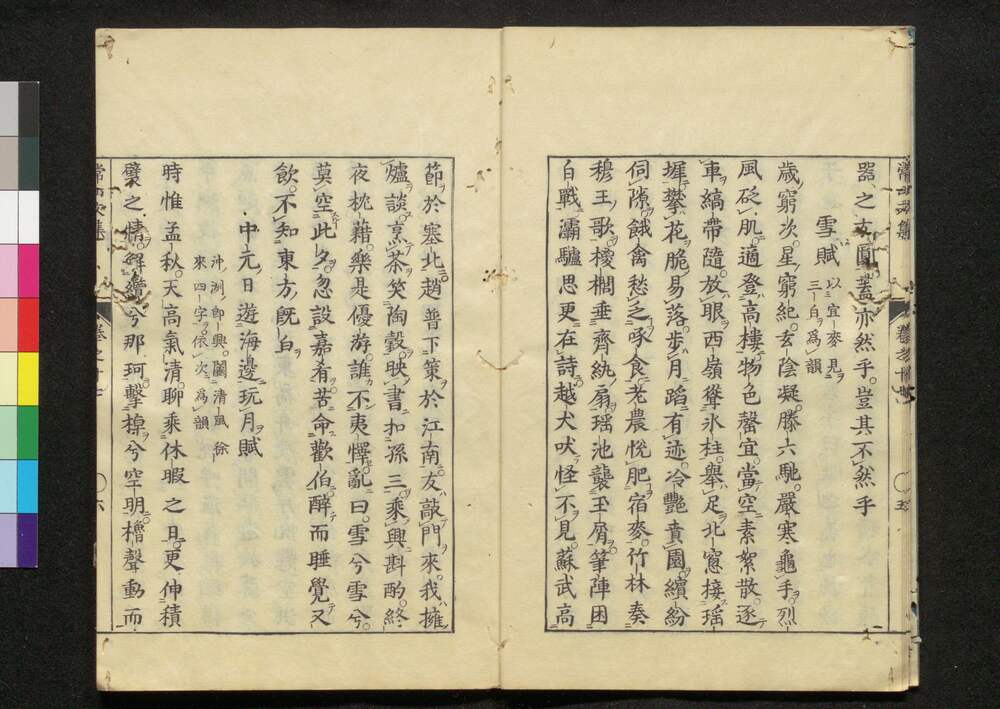 器之方圓蓋亦然乎豈其不然乎
雪賦 以宜麥見
三白為韻
歳窮次星窮紀玄陰凝滕六馳嚴寒龜手烈
風砭肌適登高樓物色罄宜當空素絮散逐
車縞帶隨放眼西嶺聳氷柱舉足北窓接瑶
墀攀花脆易落歩月蹈有迹冷艷賁園繽紛
伺隙餓禽愁乏啄食老農悅肥宿麥竹林奏
穆王歌櫻櫚垂齊紈扇瑶池襲玉屑筆陣困
白戰灞驢思更在詩越犬吠怪不見蘇武高
節於塞北趙普下策於江南友敲門來我擁
爐談烹茶笑陶穀映書扣孫三乘興斟酌終
夜枕藉樂是優游誰不夷懌亂曰雪兮雪兮
莫空此夕忽設嘉肴苦命歡伯醉而睡覺又
飲不知東方既白
中元日遊海邊玩月賦
沖洌即興闌清風徐
來四字依次為韻
時惟孟秋天高氣清聊乘休暇之且更伸積
襞之情解纜兮那珂擊槕兮空明櫓聲動而
卷之十七
六